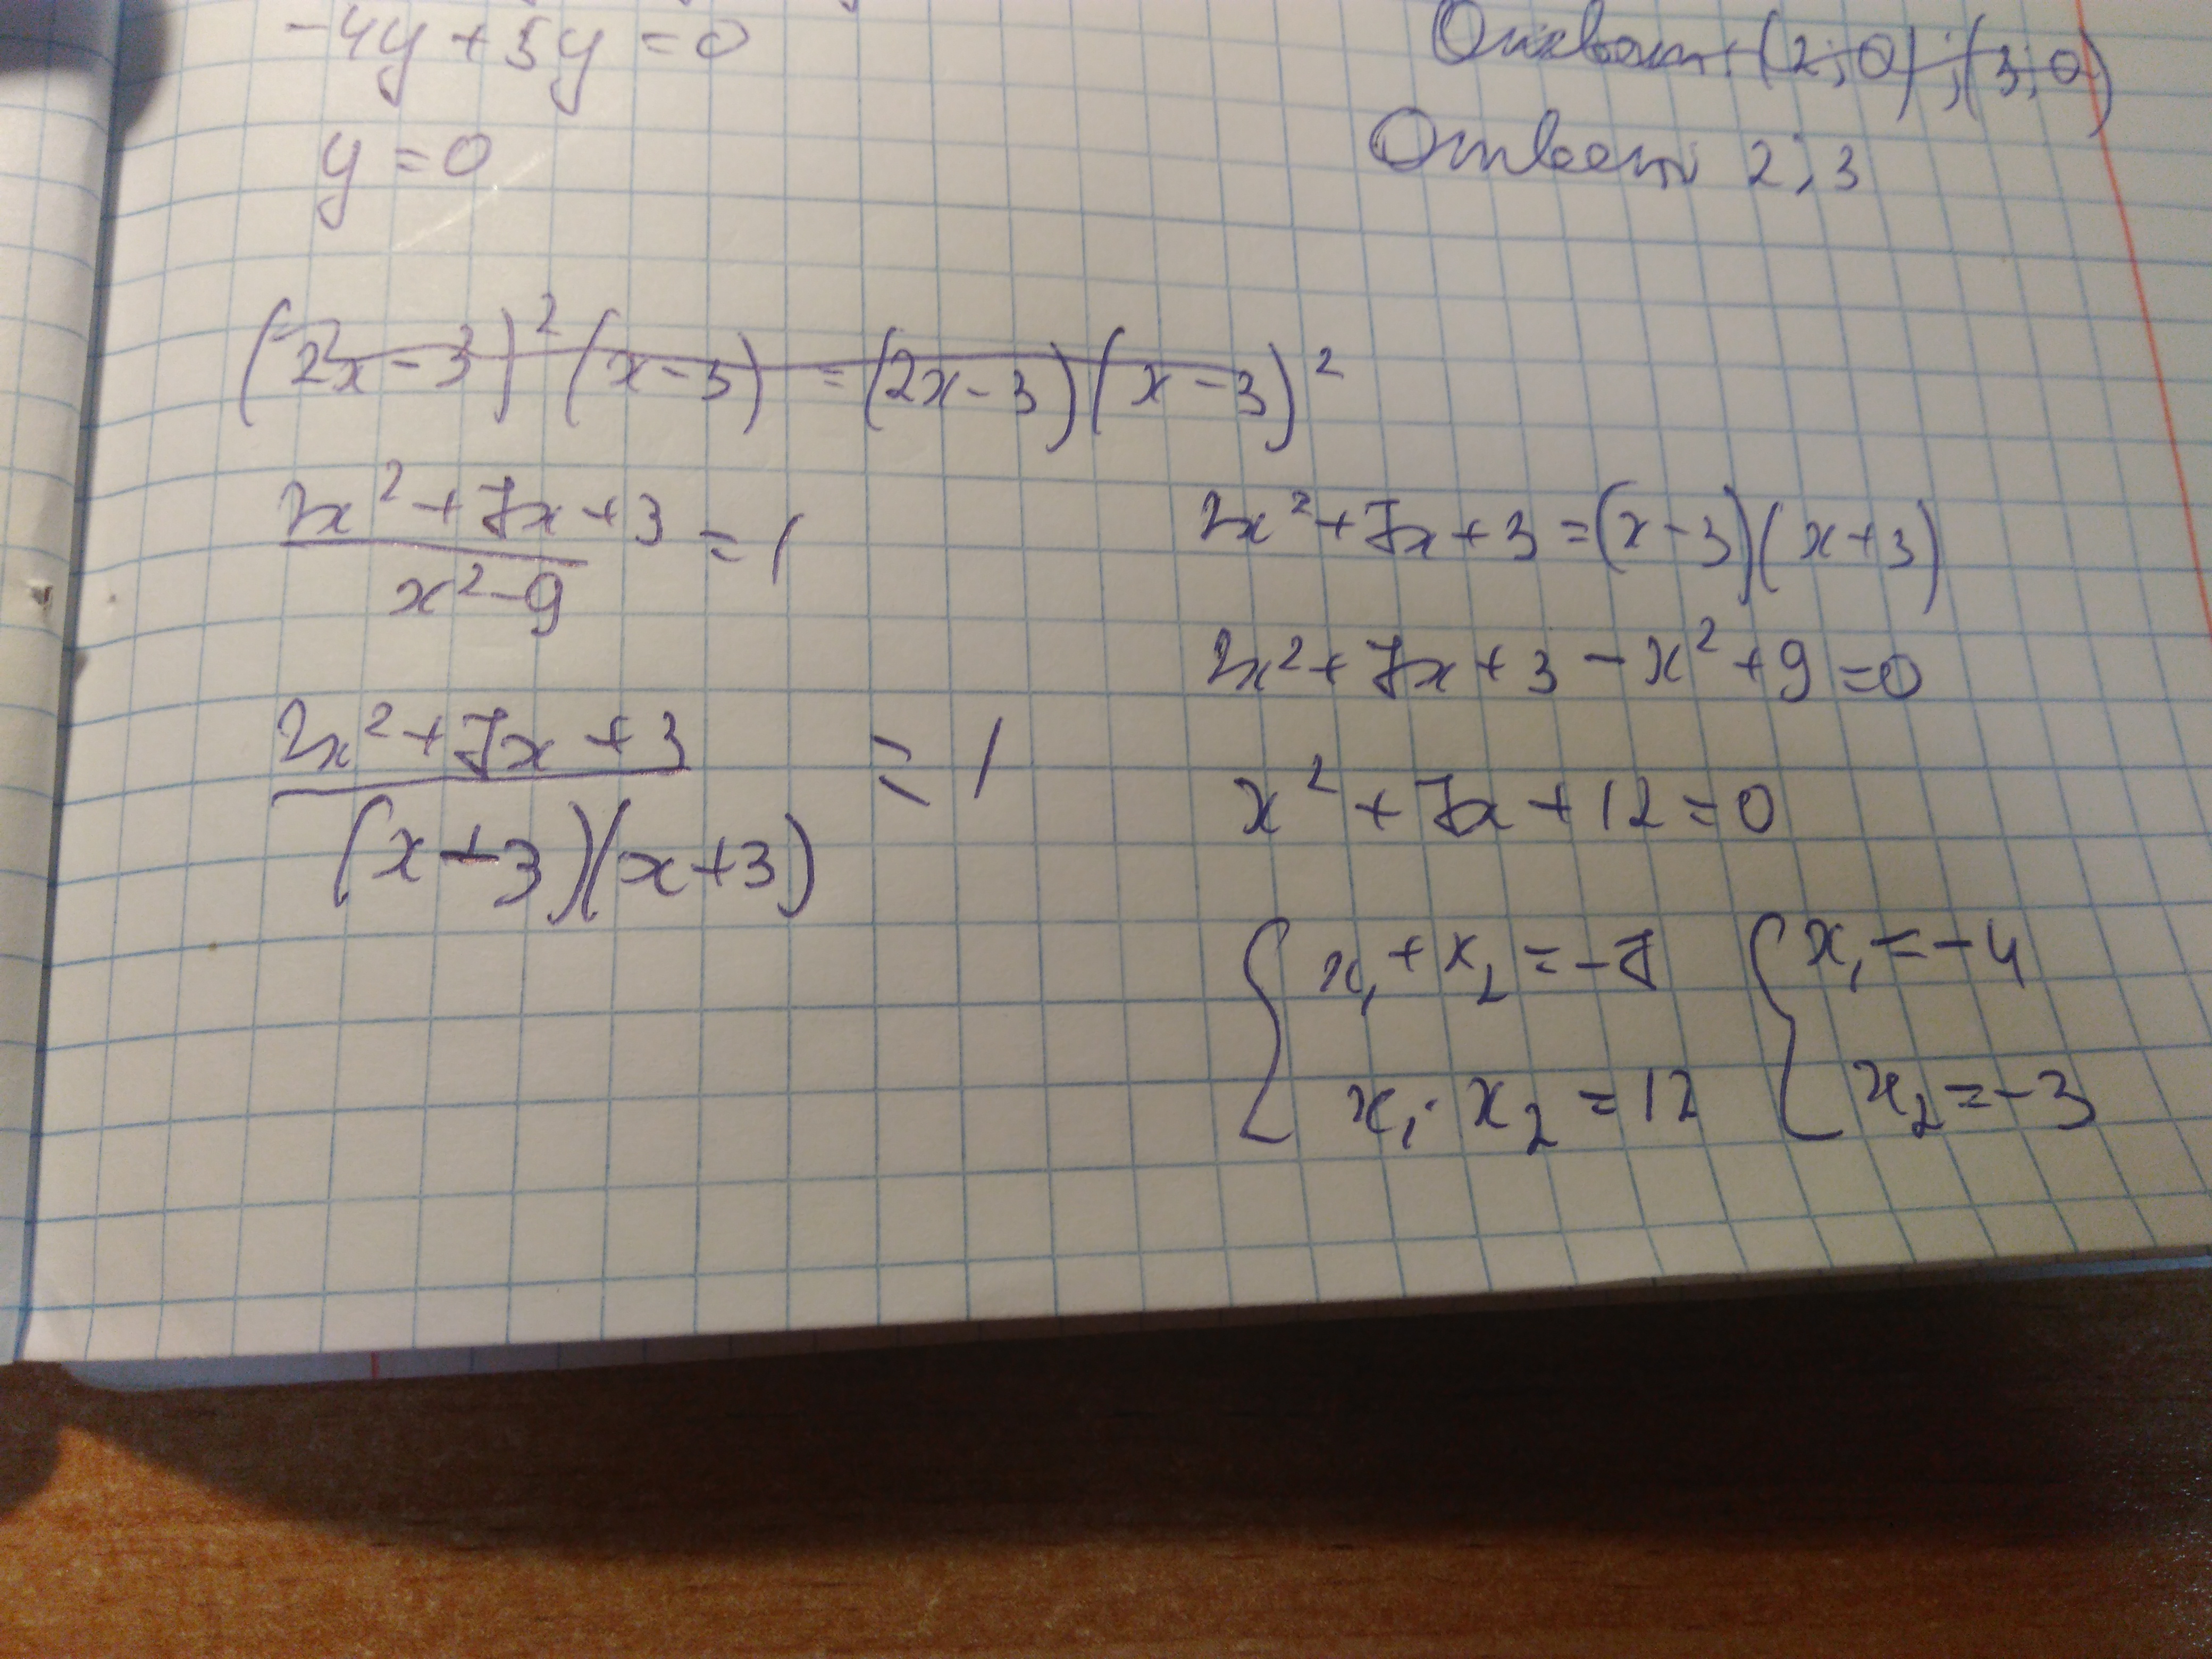 -4y + 5y = 0
y = 0
Ответ: (2; 0); (3; 0)
Ответ 2; 3
(2x - 3)² (x - 3) = (2x - 3)(x - 3)²
2x² + 7x + 3 = 1
x² - 9
2x² + 7x + 3 = 1
(x + 3)(x + 3)
2x² + 7x + 3 = (x - 3)(x + 3)
2x² + 7x + 3 - x² + 9 = 0
x² + 7x + 12 = 0
{ x₁ + x₂ = -7 { x₁ = -4
x₁ · x₂ = 12 x₂ = -3